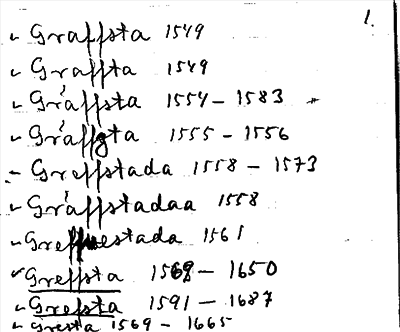 1.
Graffsta 1549
Graffta 1549
Gráffsta 1554 - 1583
Gráffgta 1555 - 1556
Greffstada 1558 - 1573
Gráffstadaa 1558
1561
Greffsta 1562 - 1650
Grefsta 1591 - 1687
Gresta 1569 - 1665